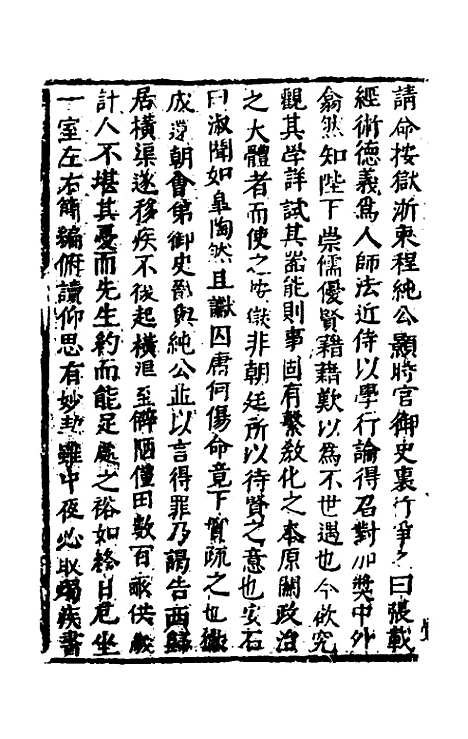 請命按獄浙東程純公顥時官御史裏行爭之曰張載
經術德義爲人師法近侍以學行論得召對加奬中外
翕然知陛下崇儒優賢藉藉歎以為不世遇也今欲究
觀其學詳試其器能則事固有繫敎化之本原關政治
之大體者而使之按獄非朝廷所以待賢之意也安石
曰淑聞如皐陶然且讞囚庸何傷命竟下實疏之也獄
成還朝會第御史戩與純公並以言得罪乃謁告西歸
居橫渠遂移疾不復起橫渠至僻陋僅田數百畝供養
計人不堪其憂而先生約而能足處之裕如終日危坐
一室左右簡編俯讀仰思有妙契雖中夜必取燭疾書